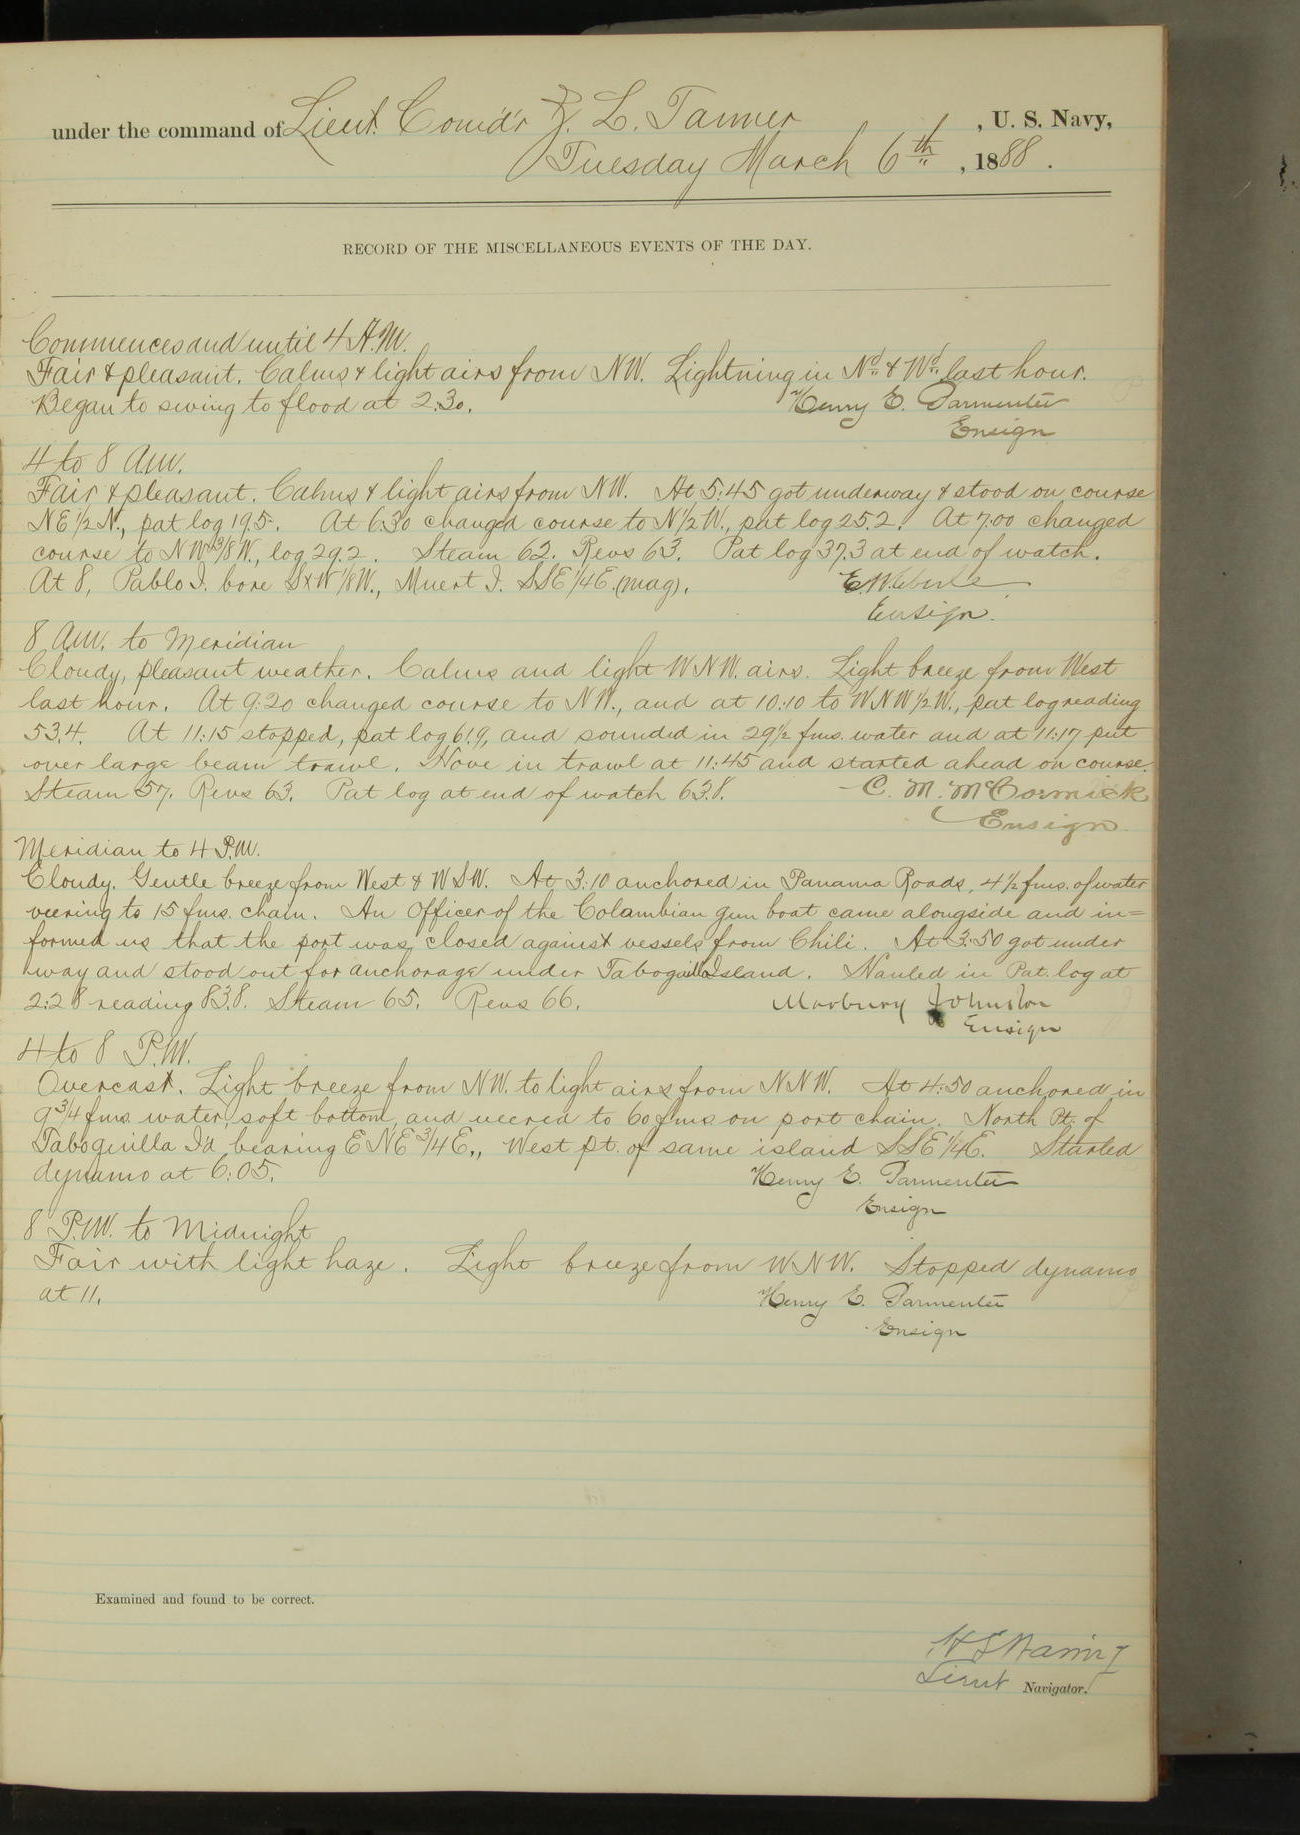 under the command of Lieut. Comd'r Z. L. Tanner, U. S. Navy,
Tuesday March 6th, 1888.
RECORD OF THE MISCELLANEOUS EVENTS OF THE DAY.
Commences and until 4 A.M.
Fair & pleasant. Calms & light airs from NW. Lightning in Nd. & Wd. last hour.
Began to swing to flood at 2.30.
Henry E. Parmenter
Ensign
4 to 8 A.M.
Fair & pleasant. Calms & light airs from NW. At 5:45 got underway & stood on course
NE 1/2 N., pat log 19.5. At 6:30 changed course to N 1/2 W., pat log 25.2. At 7:00 changed
course to NW 3/8 W., log 29.2. Steam 62. Revs 63. Pat log 37.3 at end of watch.
At 8, Pablo I. bore SxW 1/8 W., Muert I. SSE 1/4 E. (mag).
E. W. Eberle
Ensign.
8 A.M. to Meridian
Cloudy, pleasant weather. Calms and light WNW. airs. Light breeze from West
last hour. At 9:20 changed course to NW., and at 10:10 to WNW 1/2 W., pat log reading
53.4. At 11:15 stopped, pat log 61.9, and sounded in 29 1/2 fms. water and at 11:17 put
over large beam trawl. Hove in trawl at 11:45 and started ahead on course.
Steam 57. Revs 63. Pat log at end of watch 63.8.
C. M. McCormick
Ensign
Meridian to 4 P.M.
Cloudy. Gentle breeze from West & WSW. At 3:10 anchored in Panama Roads, 4 1/2 fms. of water
veering to 15 fms. chain. An Officer of the Colambian gun boat came alongside and in=
formed us that the port was closed against vessels from Chili. At 3:50 got under
way and stood out for anchorage under Taboguilla Island. Hauled in Pat. log at
2:28 reading 83.8. Steam 65. Revs 66.
Marbury Johnston
Ensign
4 to 8 P.M.
Overcast. Light breeze from NW. to light airs from NNW. At 4:50 anchored in
9 3/4 fms. water, soft bottom, and veered to 60 fms on port chain. North Pt. of
Taboguilla I'd bearing ENE 3/4 E., West pt. of same island SSE 1/4 E. Started
dynamo at 6:05.
Henry E. Parmenter
Ensign
8 P.M. to Midnight
Fair with light haze. Light breeze from WNW. Stopped dynamo
at 11.
Henry E. Parmenter
Ensign
Examined and found to be correct.
H S Waring
Lieut Navigator.